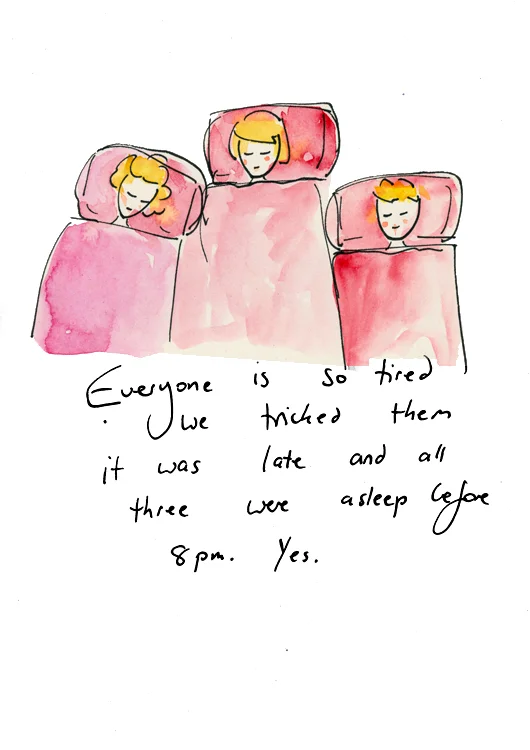 Everyone is so tired
we tricked them
it was late and all
three were asleep before
8pm. Yes.